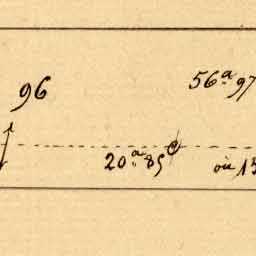 96
56ª97
20ª85
ou 15